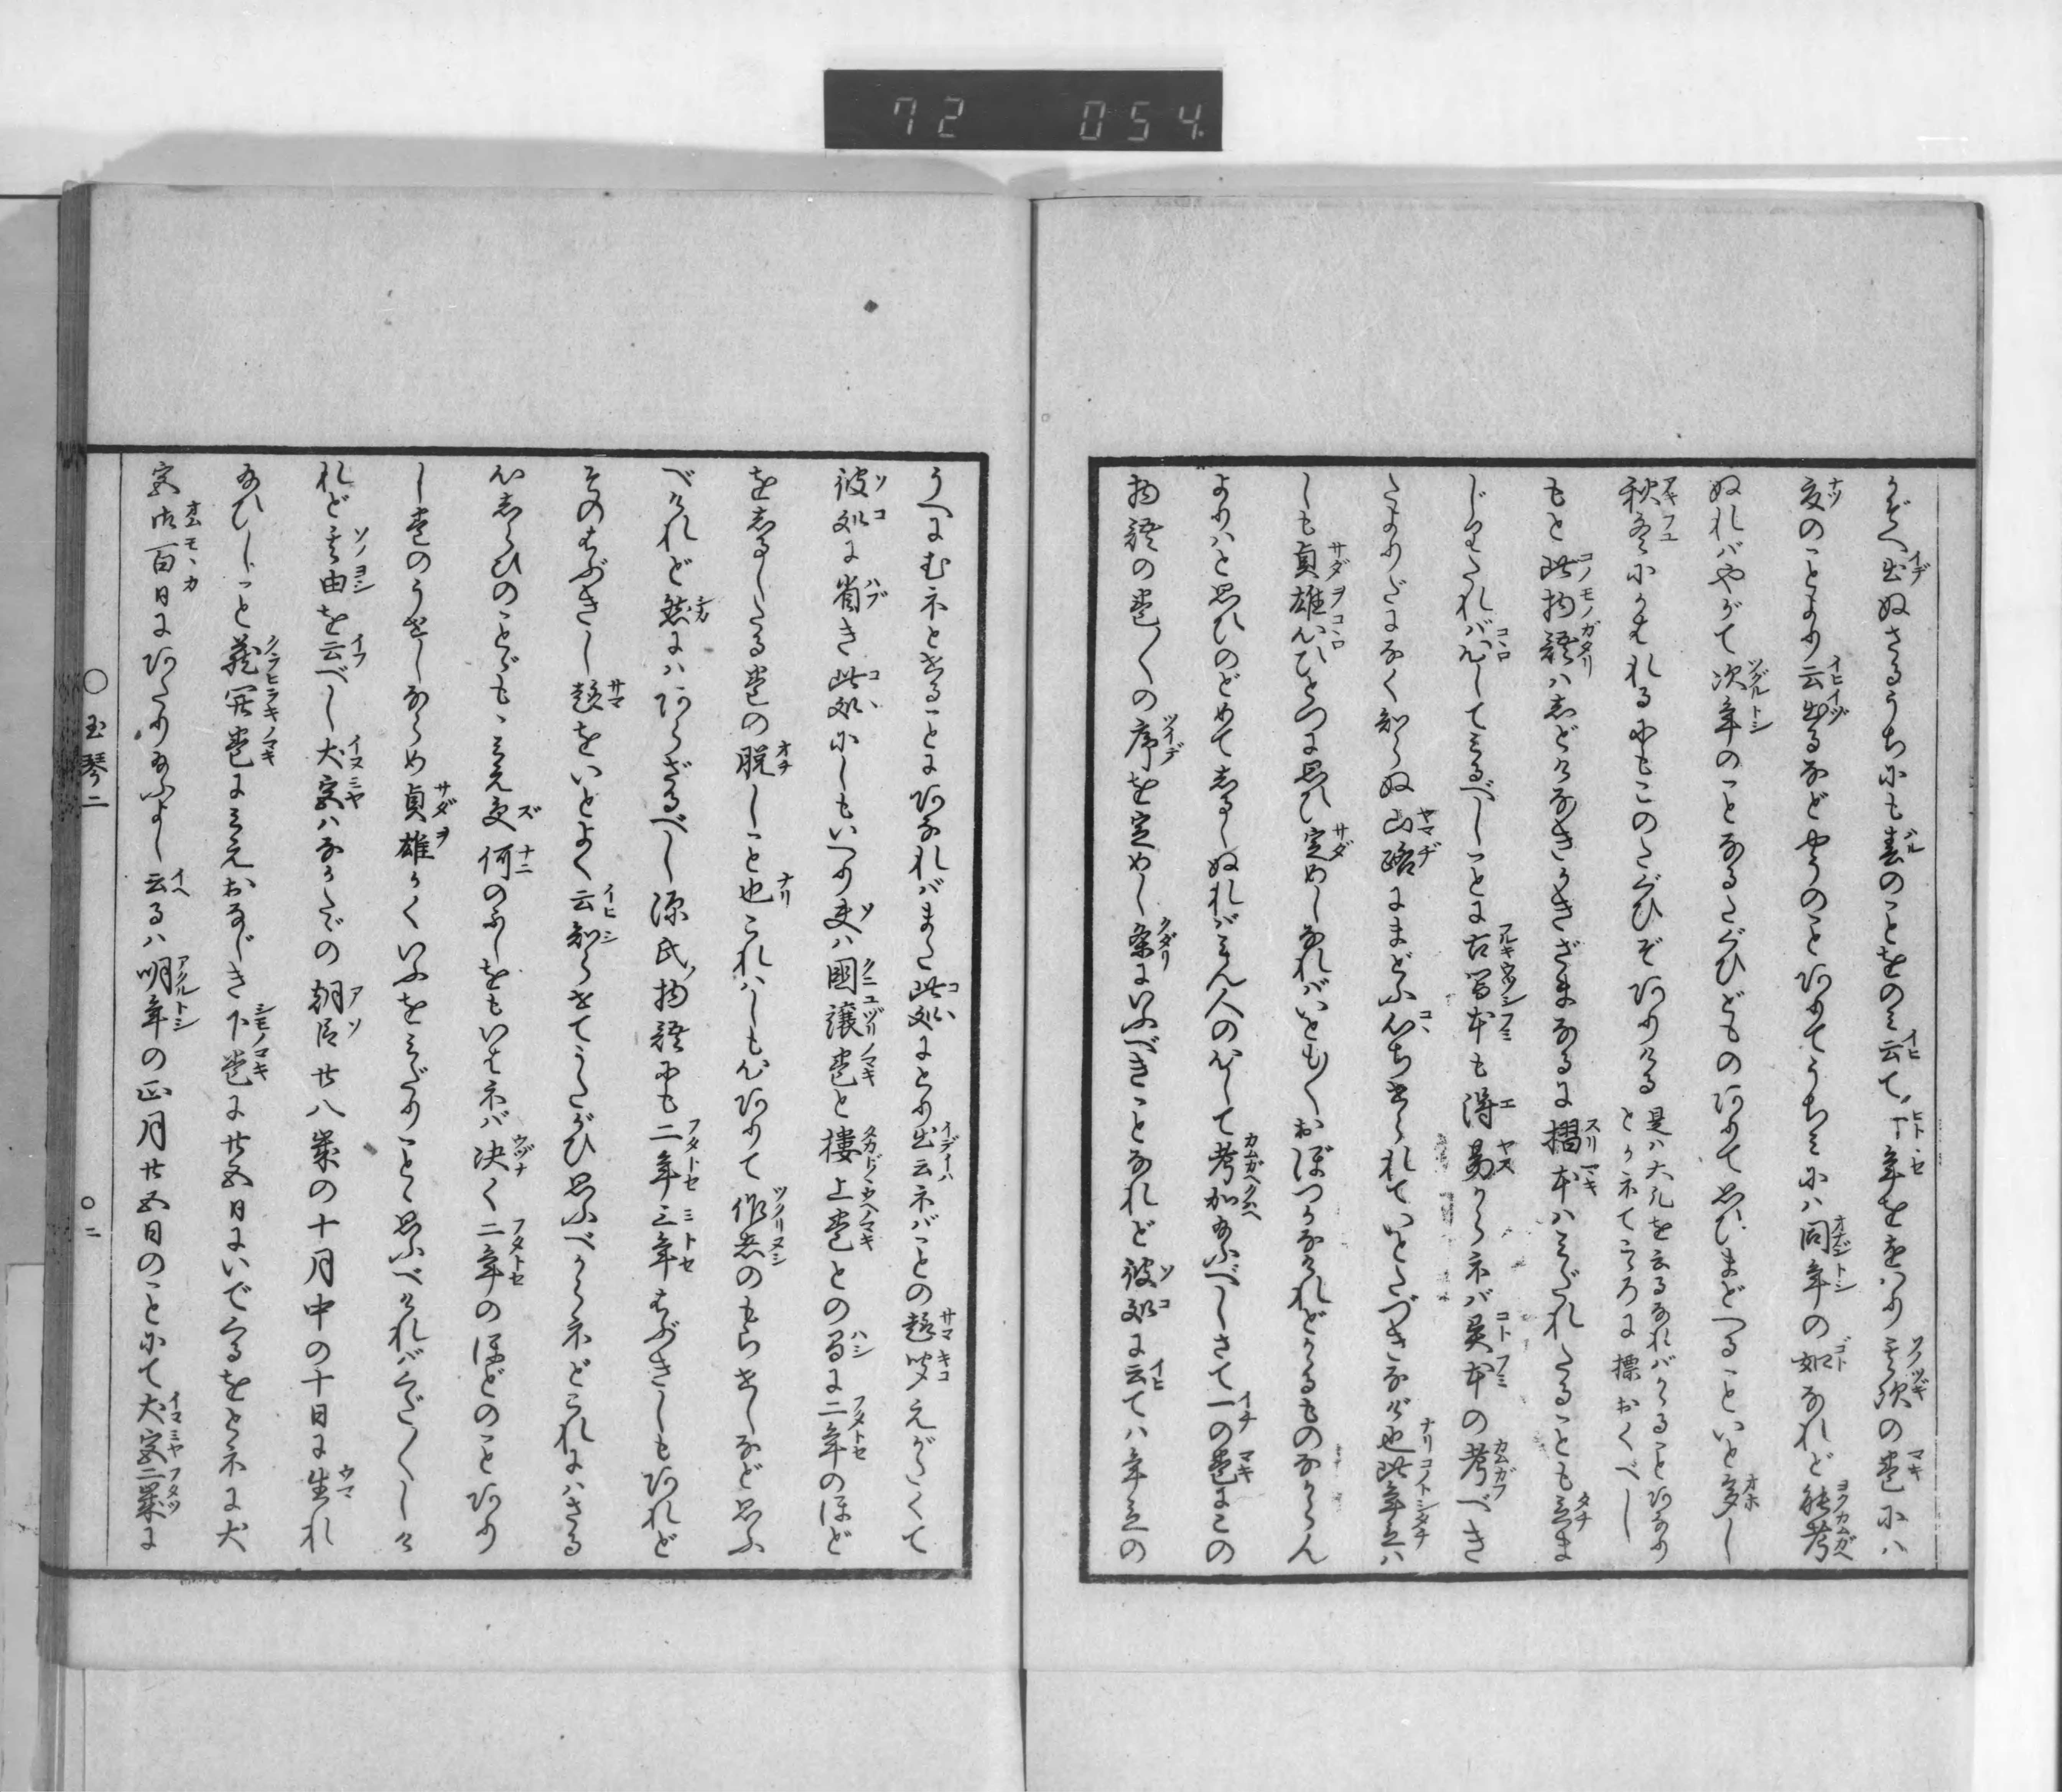 72 054
かぞへ出ぬさるうちにも春のことをのミ云て一年ををはり其次の巻にハ
夏のことより云出るなどやうのことありてうちミにハ同年の如なれど能考
ぬれバやがて次年のことなるたぐひどものありて思ひまどへることいと多し
秋冬にかゝれるにもこのたぐひぞありける 是ハ大凡を云るなれバかゝることありなり とかねてこゝろに標おくべし
もと此物語ハしどけなきかきざまなるに摺本ハみだれたることも立ま
じりたれバ心してミるべしことに古写本も得易からねバ異本の考べき
たよりだになく知らぬ山路にまどふ心ちせられていとたづきなが也此年立ハ
しも貞雄心ひとつに思ひ定めしなれバいともゝおぼつかなけれどかゝるものなからん
よりハと思ひのどめてしるしぬれバミん人の心して考加給ふべしさて一の巻にこの
物語の巻〳〵の序を定めし条にいふべきことなれど彼処に云てハ年立の
うへにむネとせることにあなれバまた此処にとり出云ネバことの趣聞えがたくて
彼処に省き此処にしもいへり夫ハ國譲巻と樓上巻との間に二年のほど
をしるしたる巻の脱しこと也これハしも心ありて作者のもらせしなど思ふ
べけれど然にハあらざるべし源氏物語にも二年三年はぶきしもあれど
そのはぶきし趣をいとよく云知らせてうたがひ思ふべからネどこれにハさる
心しらひのことゞもゝミえ受何のふしをもいはネバ决く二年のほどのことあり
し巻のうせしならめ貞雄かくいふをミだりことゝ思ふべけれバくだ〳〵しけ
れど其由を云べし犬宮ハなかたゞの朝臣廿八歳の十月中の十日に生れ
給ひしこと蔵開巻にミえおなじき下巻に廿五日にいでくるをとネに犬
宮御百日にあたり給ふよし云るハ明年の正月廿五日のことにて犬宮二歳に
○玉琴二 ○二